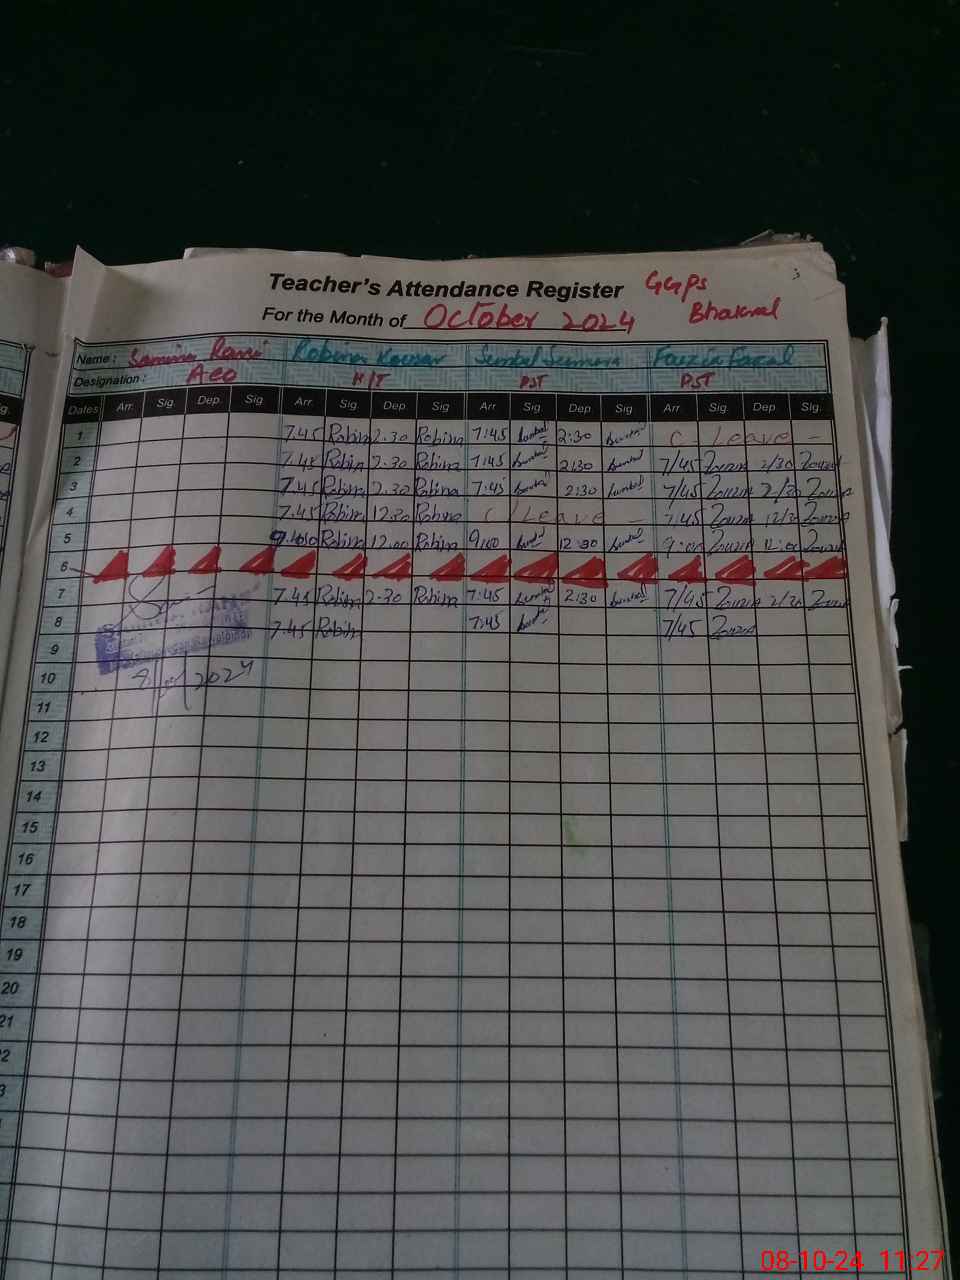 Teacher's Attendance Register GGPS
For the Month of October 2024 Bhakral
3
Name : Samina Rani Robina Kousar Sumbal Sumera Fouzia Faisal
Designation : AEO H/T PST PST
Dates Arr. Sig Dep. Sig Arr. Sig. Dep. Sig Arr Sig Dep Sig Arr Sig. Dep Sig.
1 7.45 Robina 2.30 Robina 7:45 Sumbal 2:30 Sumbal C - Leave -
2 7.45 Robina 2.30 Robina 7:45 Sumbal 2:30 Sumbal 7/45 2/30
3 7.45 Robina 2.30 Robina 7:45 Sumbal 2:30 Sumbal 7/45 2/30
4 7.45 Robina 12.30 Robina C / Leave - 7:45 12/30
5 9.00 Robina 12.00 Robina 9:00 Sumbal 12 30 Sumbal 9:00 12:00
6
7 7.45 Robina 2.30 Robina 7:45 Sumbal 2:30 Sumbal 7/45 2/30
8 7.45 Robina 7:45 7/45
9
10 2024
11
12
13
14
15
16
17
18
19
20
21
08-10-24 11:27